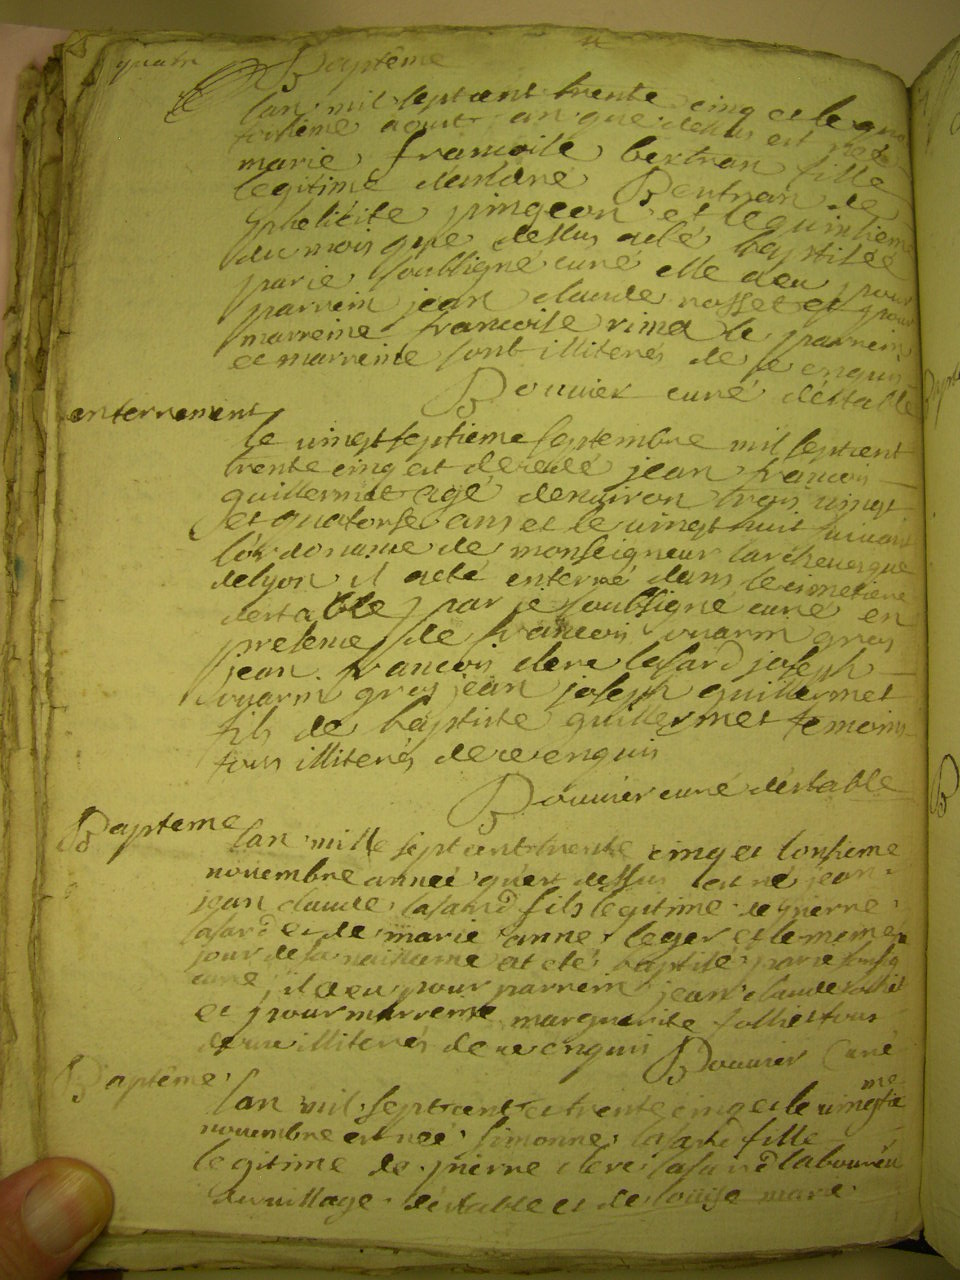 quatre
Baptême
lan mil sept cent trente cinq et le qua
torsieme aoust an que dessus est née
marie francoise bertran fille
legitime dandré Bertran de
phelicite pingeon et le quinsieme
du mois que dessus a été baptisée
par je soubsigné curé elle a eu pour
parrein jean claude rosset et pour
marreine francoise rima le parrein
et marreine sont illiterés de ce enquis
Bouvier curé déstable
enterrement
le vingt septieme septembre mil sept cent
trente cinq est decedé jean francois
guillermet agé denviron trois vingt
et quatorse ans et le vingt huit suivant
lordonance de monseigneur larcheveque
de lyon il a eté enterré dans le cimetiere
destable par je soubsigné curé en
presence de francois vuarin gros
jean francois clerc lasard joseph
vuarin gros jean joseph guillermet
fils de baptiste guillermet temoins
tous illiterés de ce enquis
Bouvier curé déstable
Bapteme
lan mille sept cent trente cinq et lonsieme
novembre année quest dessus est né jean
jean claude lasard fils legitime de pierre
lasard et de marie anne leger et le meme
jour de sa naissance at eté baptisé par je soubsig
curé, il a eu pour parrein jean claude
et pour marreine marguerite folliet tous
deux illiterés de ce enquis Bouvier Curé
Baptême
lan mil sept cent et trente cinq et le vingtie
me
novembre est née simonne lasard fille
legitime de pierre clerc lasard laboureu
du village déstable et de louise marie